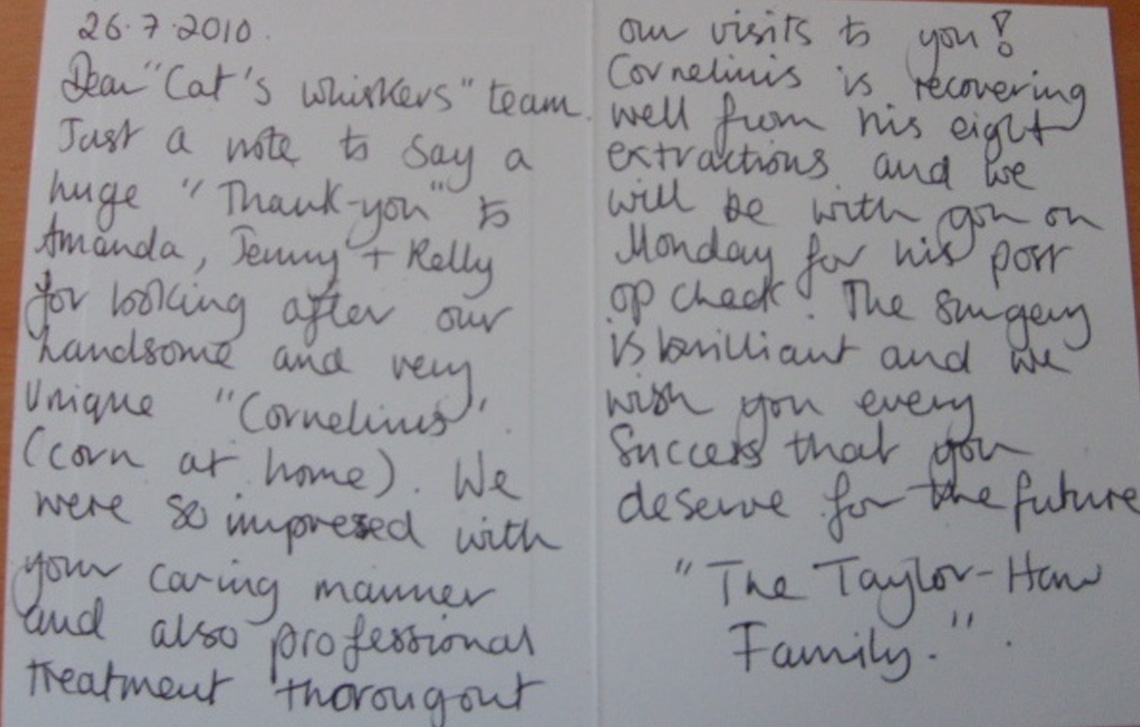 26.7.2010.
Dear "Cat's whiskers" team.
Just a note to say a
huge "Thank-you" to
Amanda, Jenny + Kelly
for looking after our
handsome and very
unique "Cornelius"
(corn at home). We
were so impressed with
your caring manner
and also professional
treatment thorougout
our visits to you!
Cornelius is recovering
well from his eight
extractions and we
will be with you on
Monday for his post
op check. The surgery
is brilliant and we
wish you every
success that you
deserve for the future
"The Taylor-
Family."